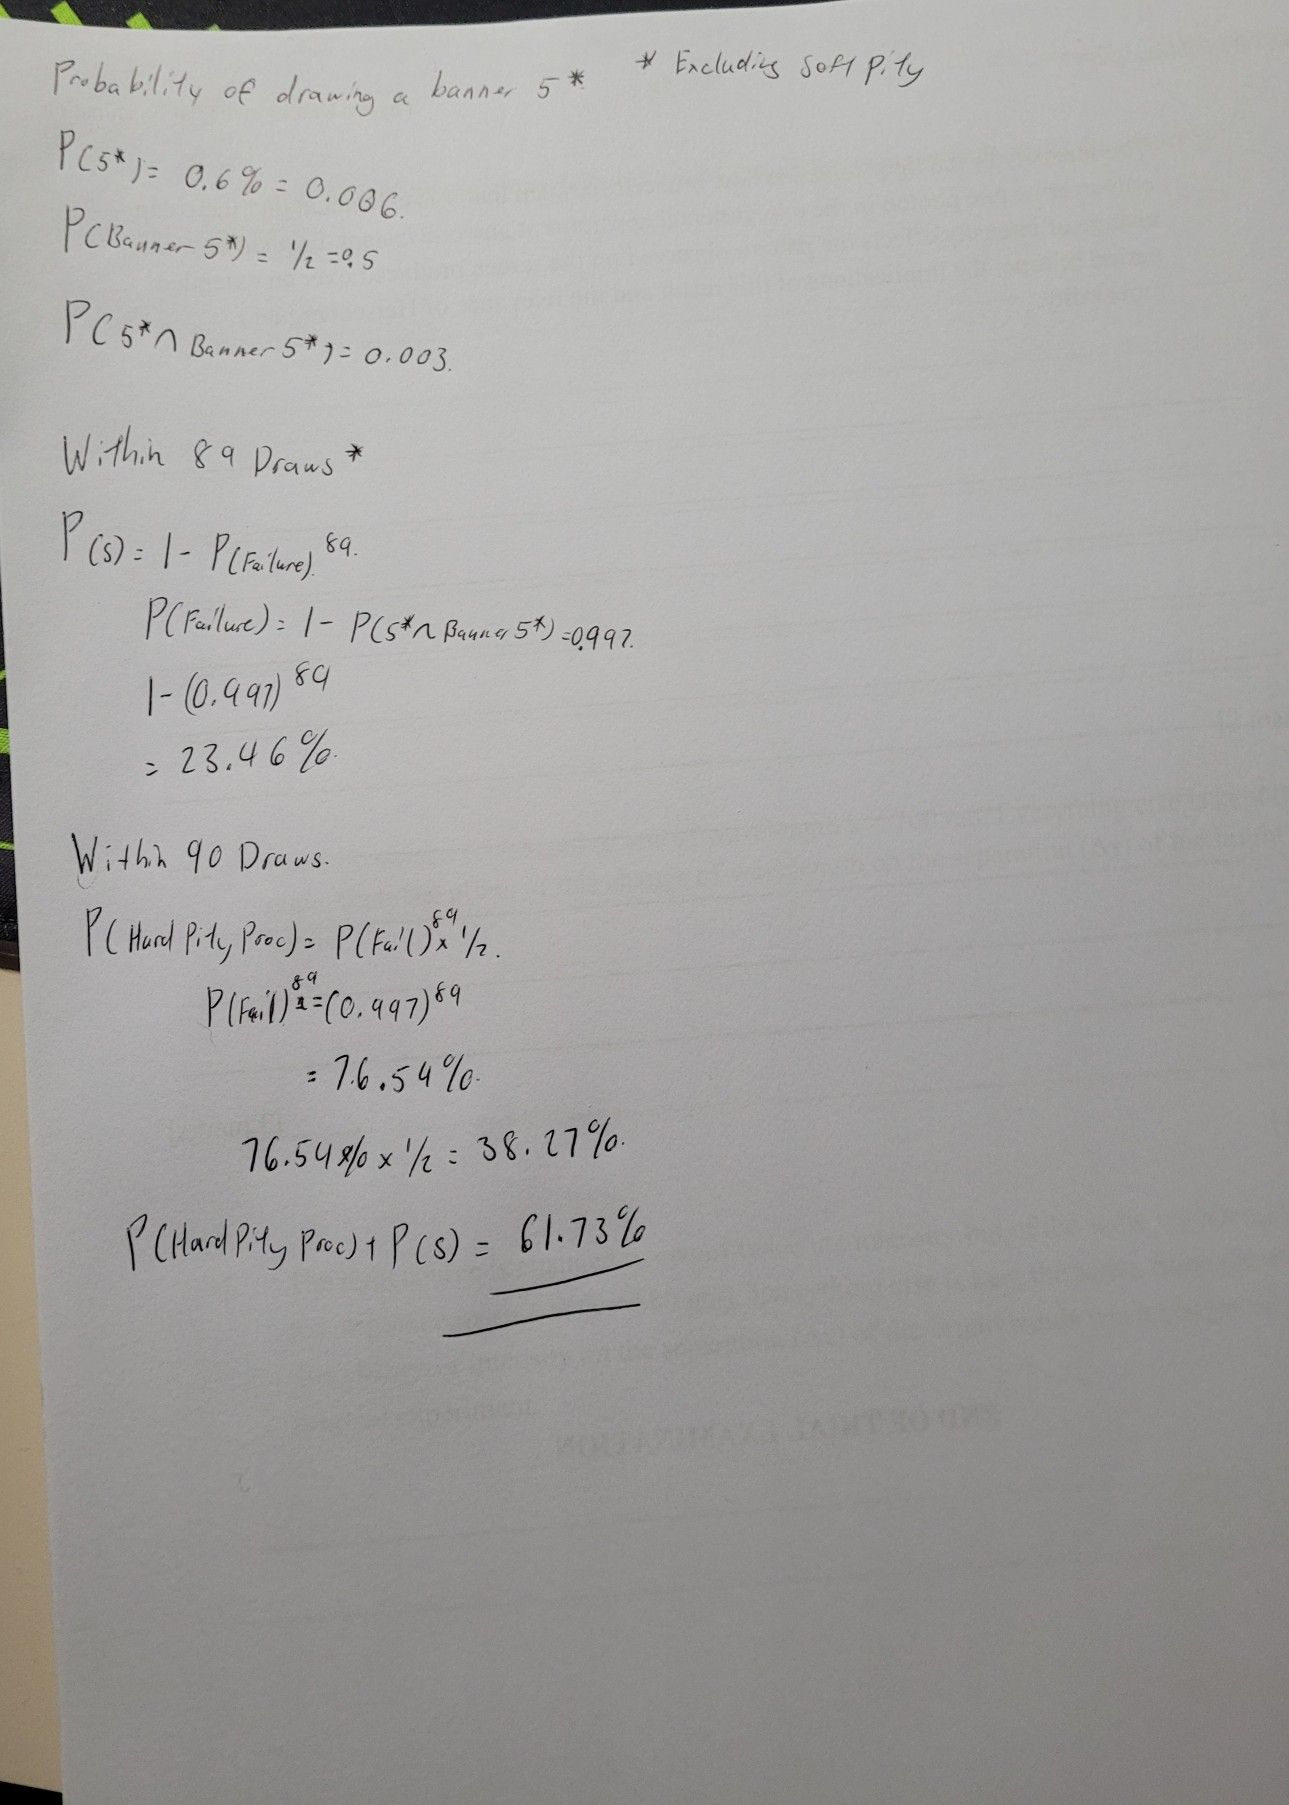 Probability of drawing a banner 5* * Excluding soft pity
P(5*) = 0.6% = 0.006.
P(Banner 5*) = 1/2 = 0.5
P(5* ∩ Banner 5*) = 0.003.
Within 89 Draws *
P(S) = 1 - P(Failure)^89.
P(Failure) = 1 - P(5* ∩ Banner 5*) = 0.997.
1 - (0.997)^89
= 23.46%.
Within 90 Draws.
P(Hard Pity Proc) = P(Fail)^89 x 1/2.
P(Fail)^89 = (0.997)^89
= 76.54%.
76.54% x 1/2 = 38.27%.
P(Hard Pity Proc) + P(S) = 61.73%
END OF TRIAL EXAMINATION